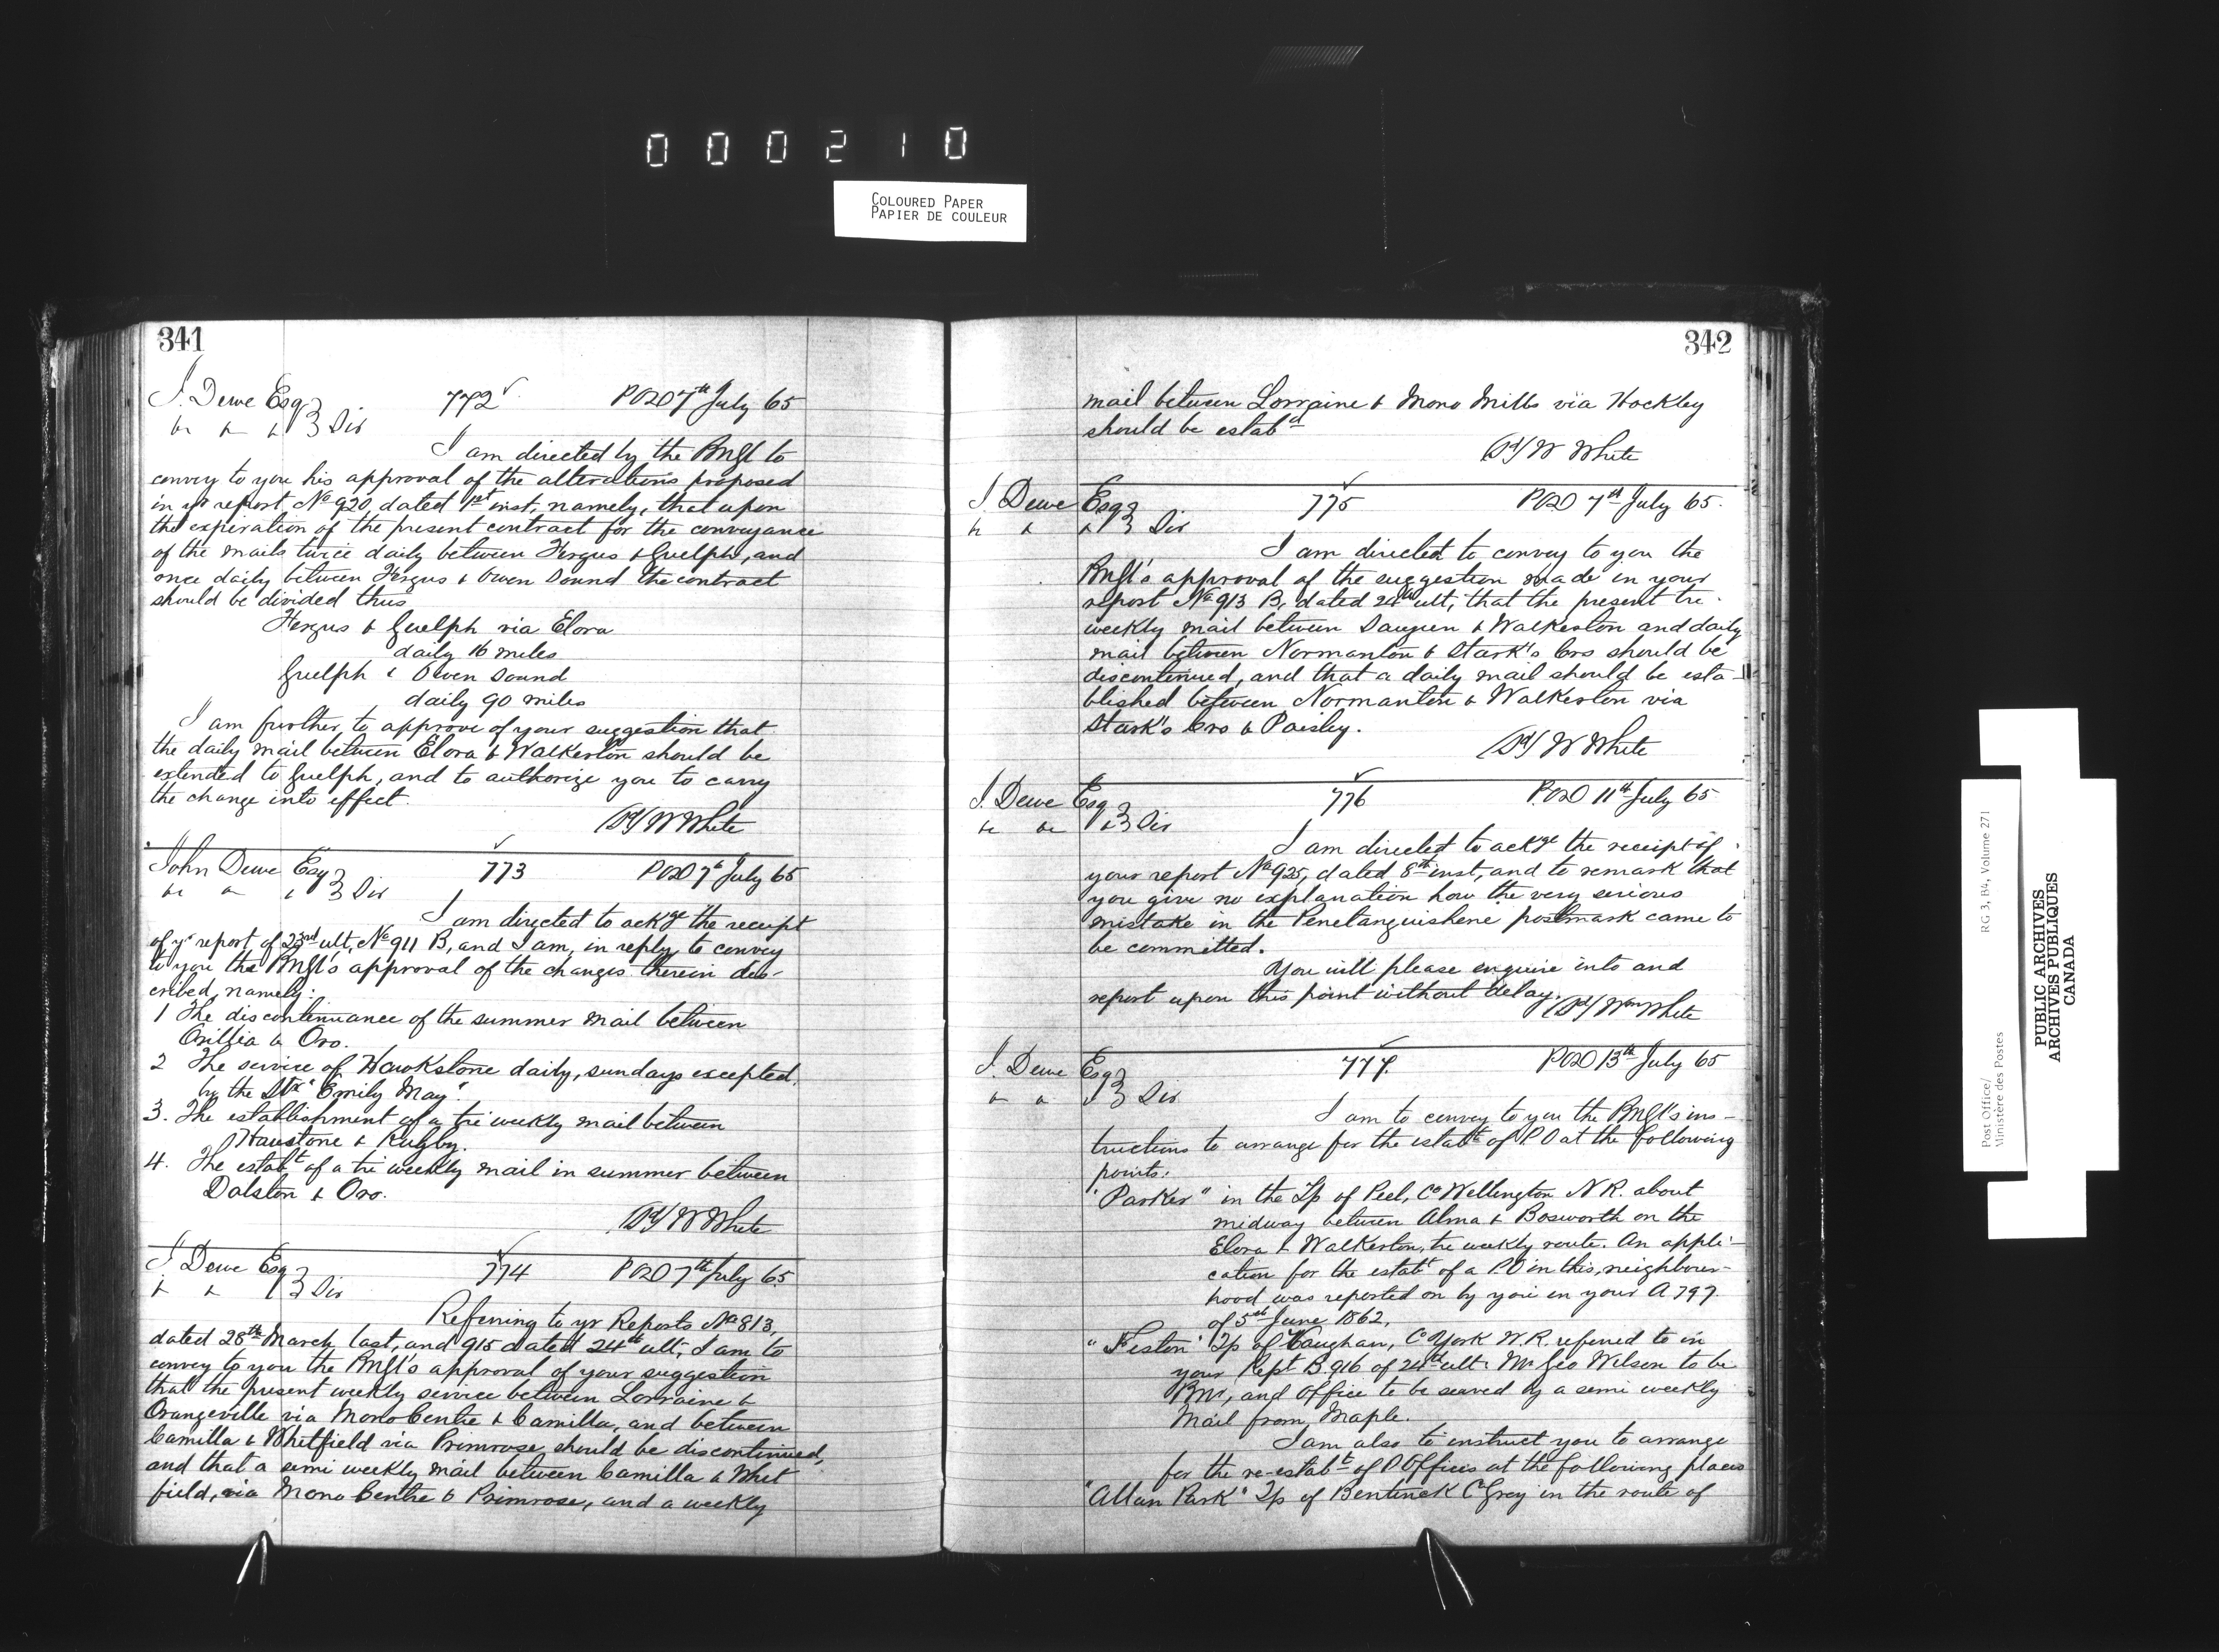 000210
COLOURED PAPER
PAPIER DE COULEUR
341
J. Dewe Esq 772 POD 7th July 65
&c & & 3 Div
I am directed by the PMGl to
convey to you his approval of the alterations proposed
in yr report No 920, dated 1st inst, namely, that upon
the expiration of the present contract for the conveyance
of the mails twice daily between Fergus & Guelph, and
once daily between Fergus & Owen Sound the contract
should be divided thus
Fergus & Guelph via Elora
daily 16 miles
Guelph & Owen Sound
daily 90 miles
I am further to approve of your suggestion that
the daily mail between Elora & Walkerton should be
extended to Guelph, and to authorize you to carry
the change into effect.
(Sd) W White
John Dewe Esq 773 POD 7th July 65
&c & & 3 Div
I am directed to ackge the receipt
of yr report of 23rd ult, No 911 B, and I am, in reply, to convey
to you the PMGl's approval of the changes therein des-
cribed, namely:
1 The discontinuance of the summer mail between
Orillia & Oro.
2 The service of Hawkstone daily, sundays excepted,
by the Str "Emily May".
3. The establishment of a tri weekly mail between
Hawstone & Rugby.
4. The estabt of a tri weekly mail in summer between
Dalston & Oro.
(Sd) W White
J Dewe Esq 774 POD 7th July 65
& & 3 Div
Referring to yr Reports No 813,
dated 28th March last, and 915 dated 24th ult, I am to
convey to you the PMGl's approval of your suggestion
that the present weekly service between Lorraine &
Orangeville via Mono Centre & Camilla, and between
Camilla & Whitfield via Primrose should be discontinued,
and that a semi weekly mail between Camilla & Whit
field, via Mono Centre & Primrose, and a weekly
342
mail between Lorraine & Mono Mills via Hockley
should be estabd
(Sd) W White
J. Dewe Esq 775 POD 7th July 65.
&c & & 3 Div
I am directed to convey to you the
PMGl's approval of the suggestion made in your
report No 913 B, dated 24th ult, that the present tri-
weekly mail between Saugeen & Walkerton and daily
mail between Normanton & Stark's Crs should be
discontinued, and that a daily mail should be esta-
blished between Normanton & Walkerton via
Stark's Crs & Paisley.
(Sd) W White
J. Dewe Esq 776 POD 11th July 65
&c &c & 3 Div
I am directed to ackge the receipt of
your report No 925, dated 8th inst, and to remark that
you give no explanation how the very serious
mistake in the Penetanguishene postmark came to
be committed.
You will please enquire into and
report upon this point without delay.
(Sd) Wm White
J. Dewe Esq 777. POD 13th July 65
& & 3 Div
I am to convey to you the PMGl's ins-
tructions to arrange for the estabt of P.O at the following
points:
"Parker" in the Tp of Peel, Co Wellington N R. about
midway between Alma & Bosworth on the
Elora & Walkerton, tri weekly route. An appli-
cation for the estabt of a P.O in this, neighbour-
hood was reported on by you in your A 797.
of 5th June 1862.
"Feston" Tp of Vaughan, Co York W.R. referred to in
your Rept B.916 of 24th ult. Mr Geo Wilson to be
PMr, and office to be served by a semi weekly
Mail from Maple.
I am also to instruct you to arrange
for the re-estabt of P Offices at the following places
"Allan Park" Tp of Bentinck Co Grey in the route of
Post Office/
Ministère des Postes
RG 3, B4, Volume 271
PUBLIC ARCHIVES
ARCHIVES PUBLIQUES
CANADA